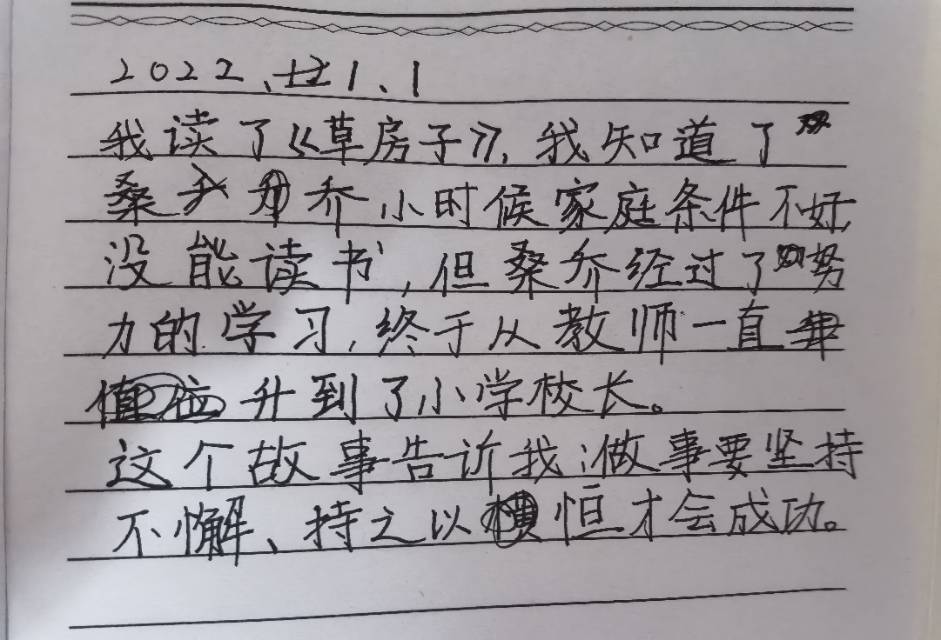 2022、1、1
我读了《草房子》,我知道了
桑乔小时候家庭条件不好,
没能读书,但桑乔经过了努
力的学习,终于从教师一直
升到了小学校长。
这个故事告诉我:做事要坚持
不懈、持之以恒才会成功。